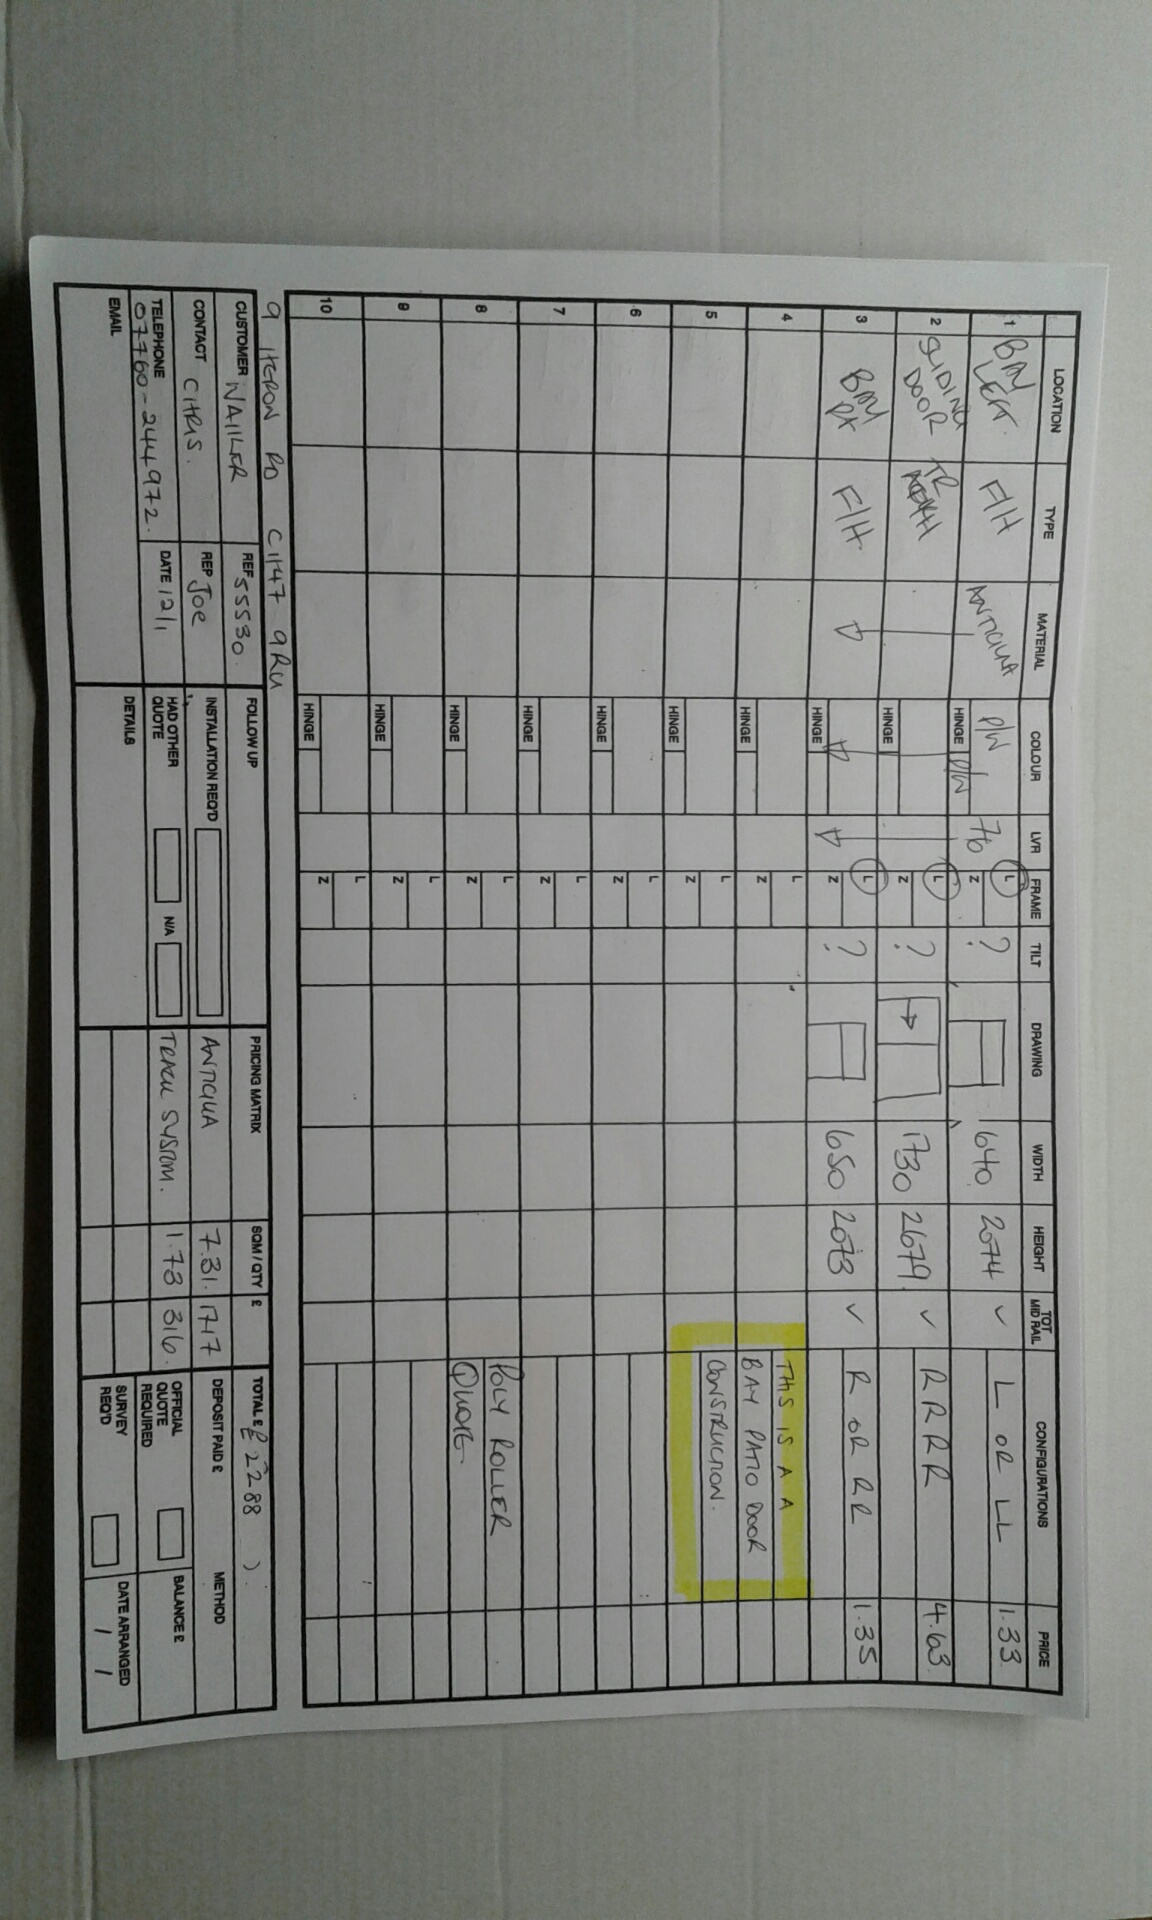 LOCATION TYPE MATERIAL COLOUR LVR FRAME TILT DRAWING WIDTH HEIGHT TOT MID RAIL CONFIGURATIONS PRICE
1 BAY LEFT. F/H ANTIGUA P/W HINGE P/W 76 L Z ? 640 2074 ✓ L OR LL 1.33
2 SLIDING DOOR TR HINGE L Z ? 1730 2679 ✓ RRRR 4.63
3 BAY RX F/H. HINGE L Z ? 650 2073 ✓ R OR RR 1.35
4 HINGE L Z THIS IS A A
BAY PATIO DOOR
5 HINGE L Z CONSTRUCTION.
6 HINGE L Z
7 HINGE L Z
8 HINGE L Z POLY ROLLER
QUOTE.
9 HINGE L Z
10 HINGE L Z
9 HERON RD CH47 9RU
CUSTOMER WAILER REF 55530. FOLLOW UP PRICING MATRIX SQM / QTY £ TOTAL £ £2288
CONTACT CHRIS. REP JOE INSTALLATION REQ'D ANTIGUA 7.31. 1717 DEPOSIT PAID £ METHOD
TELEPHONE 07760-244972. DATE 12/1 HAD OTHER QUOTE N/A TRACK SYSTEM. 1.73 316. OFFICIAL QUOTE REQUIRED BALANCE £
EMAIL DETAILS SURVEY REQ'D DATE ARRANGED / /